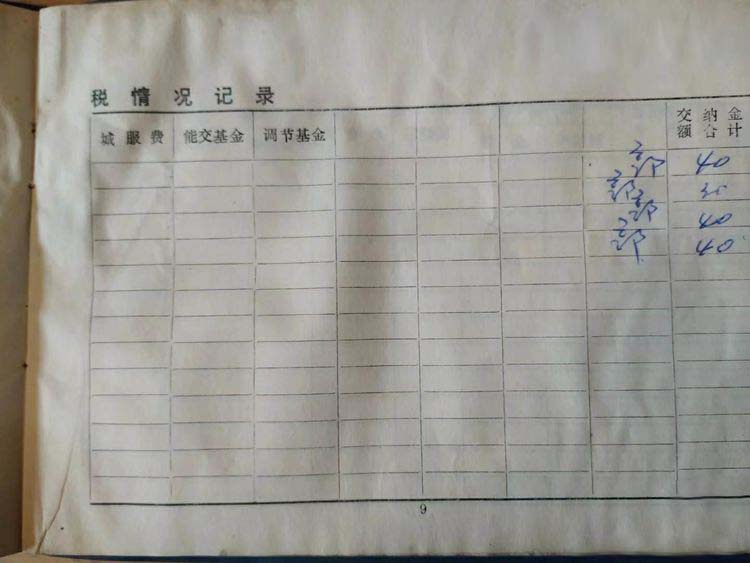 税情况记录
城服费 能交基金 调节基金 交纳金额合计
40
40
40
9